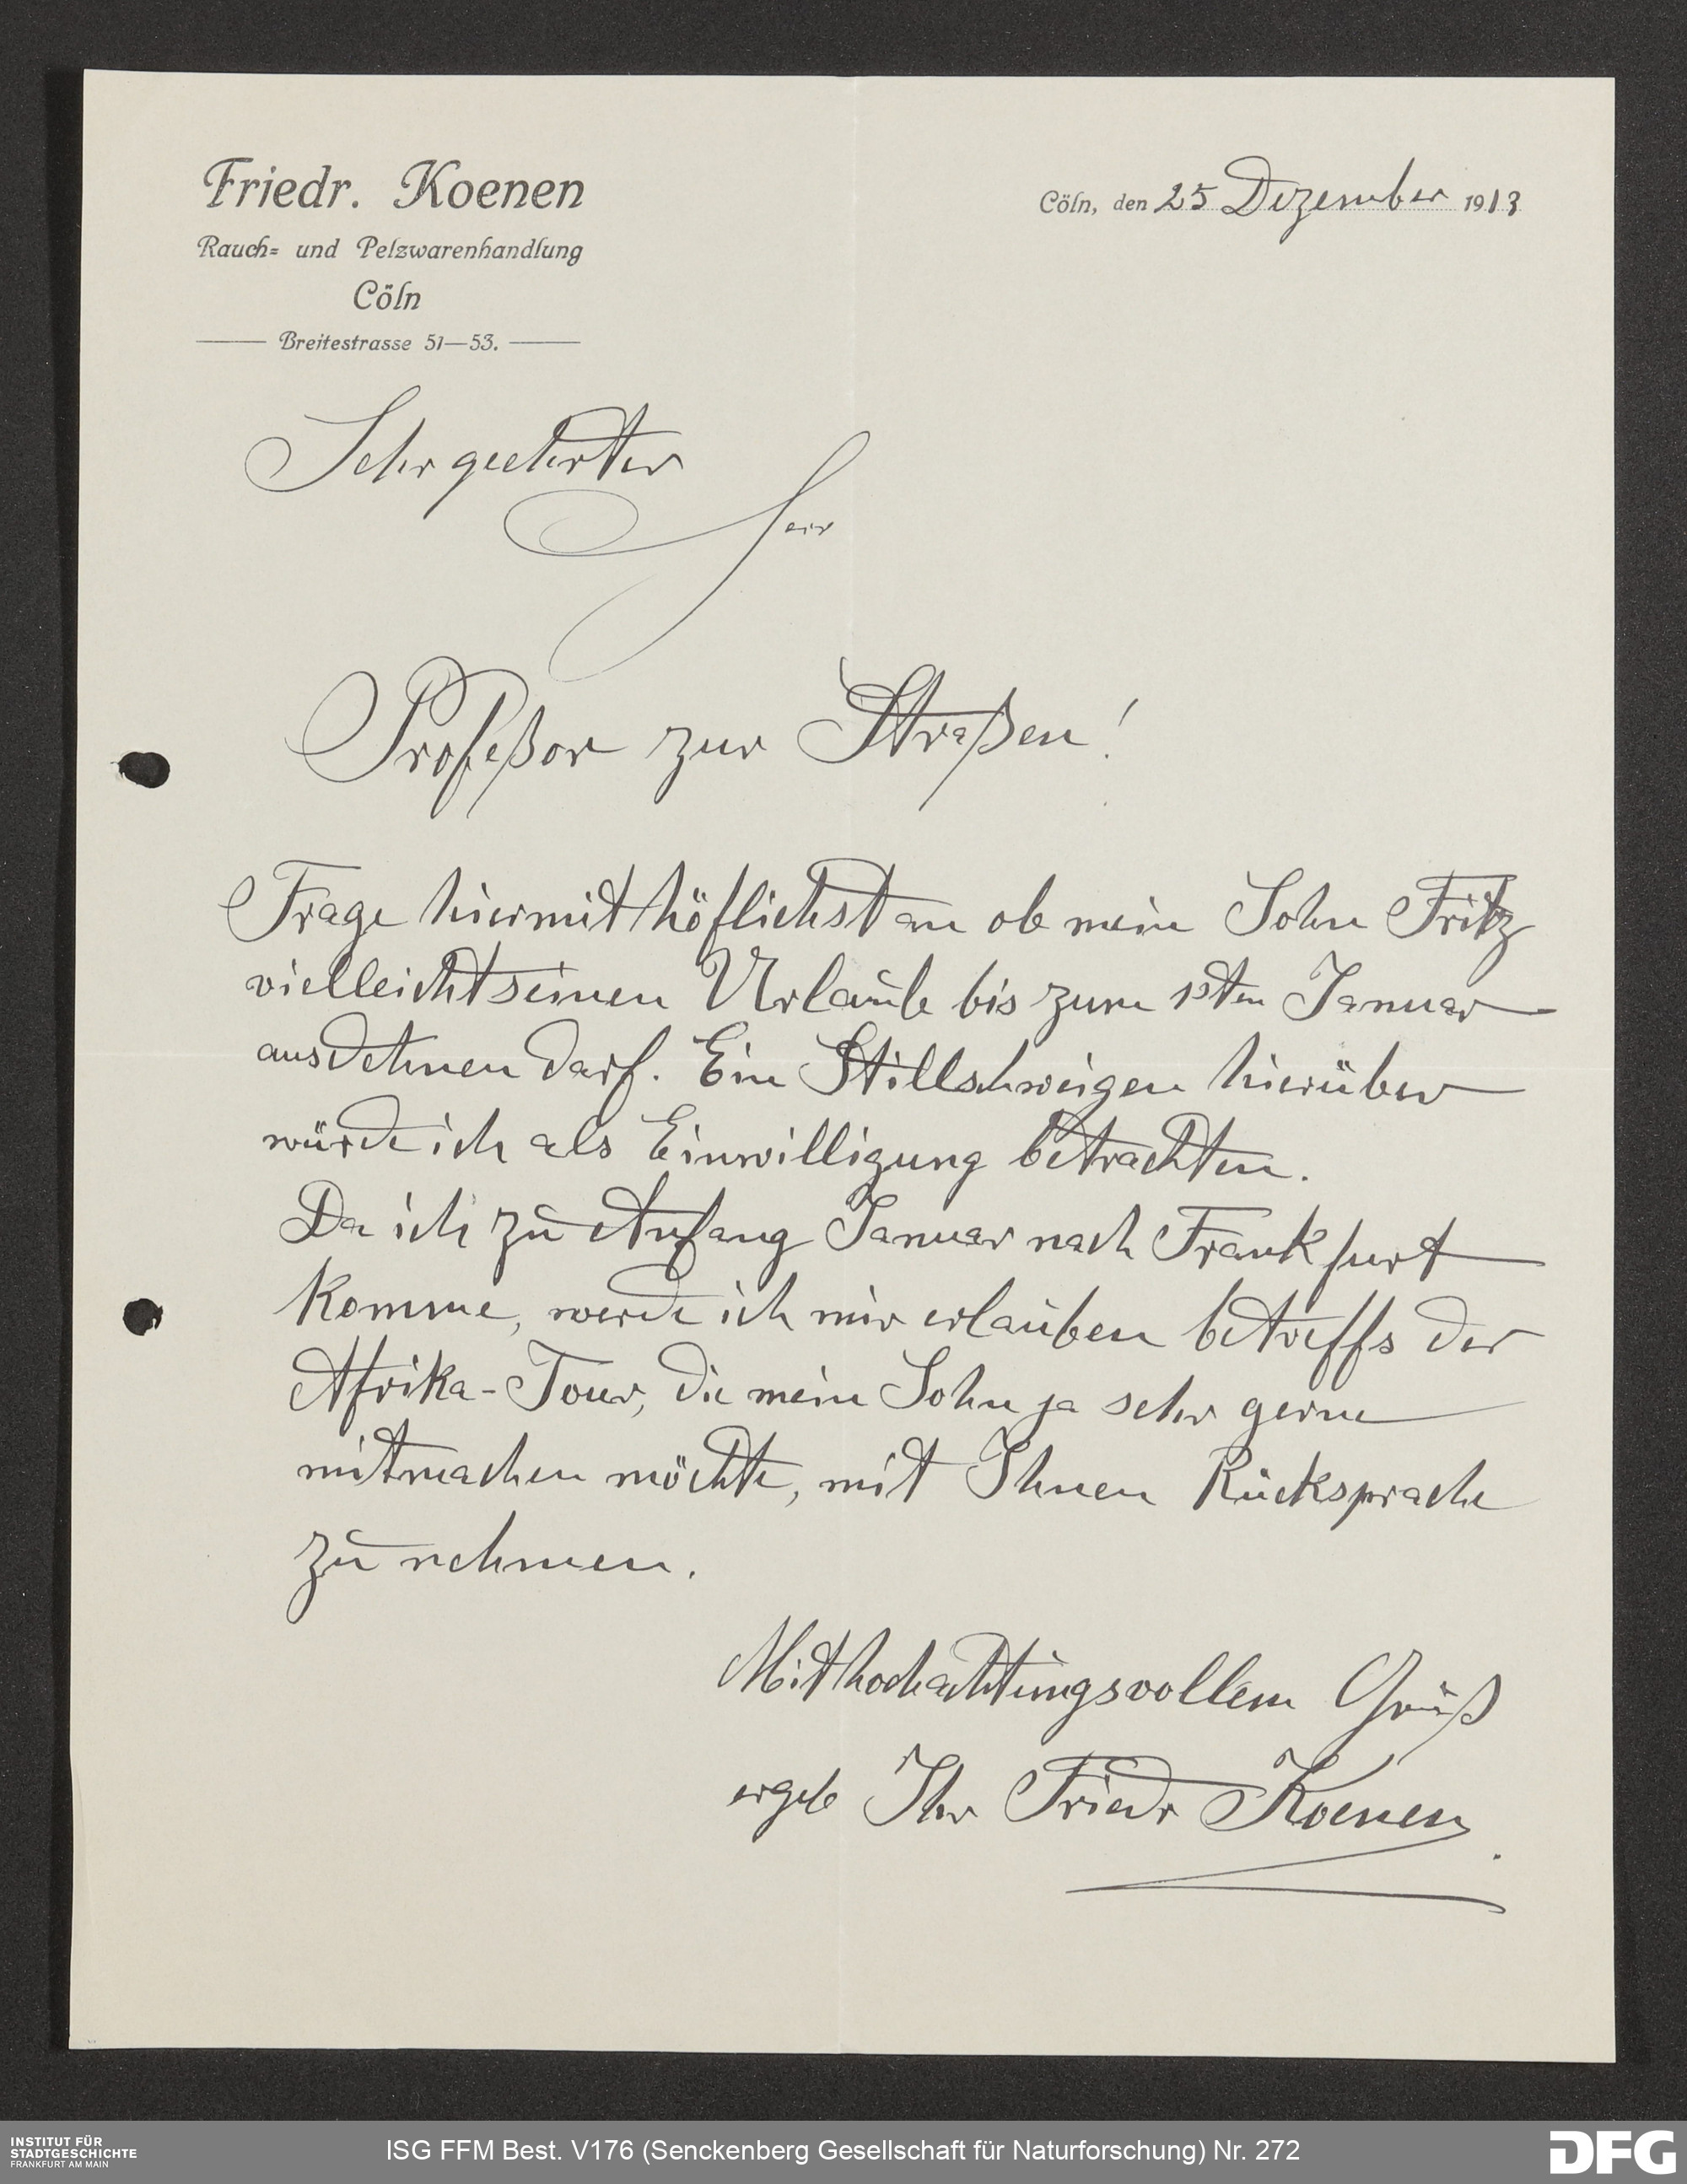 Friedr. Koenen
Rauch= und Pelzwarenhandlung
Cöln
Breitestrasse 51—53.
Cöln, den 25 Dezember 1913
Sehr geehrter
Herr
Profeßor zur Straßen!
Frage hiermit höflichst an ob mein Sohn Fritz
vielleicht seinen Urlaub bis zum 1sten Januar
ausdehnen darf. Ein Stillschweigen hierüber
würde ich als Einwilligung betrachten.
Da ich zu Anfang Januar nach Frankfurt
komme, werde ich mir erlauben betreffs der
Afrika-Tour, die mein Sohn ja sehr gerne
mitmachen möchte, mit Ihnen Rücksprache
zu nehmen.
Mit hochachtungsvollem Gruß
ergeb Ihr Friedr Koenen.
INSTITUT FÜR
STADTGESCHICHTE
FRANKFURT AM MAIN
ISG FFM Best. V176 (Senckenberg Gesellschaft für Naturforschung) Nr. 272
DFG